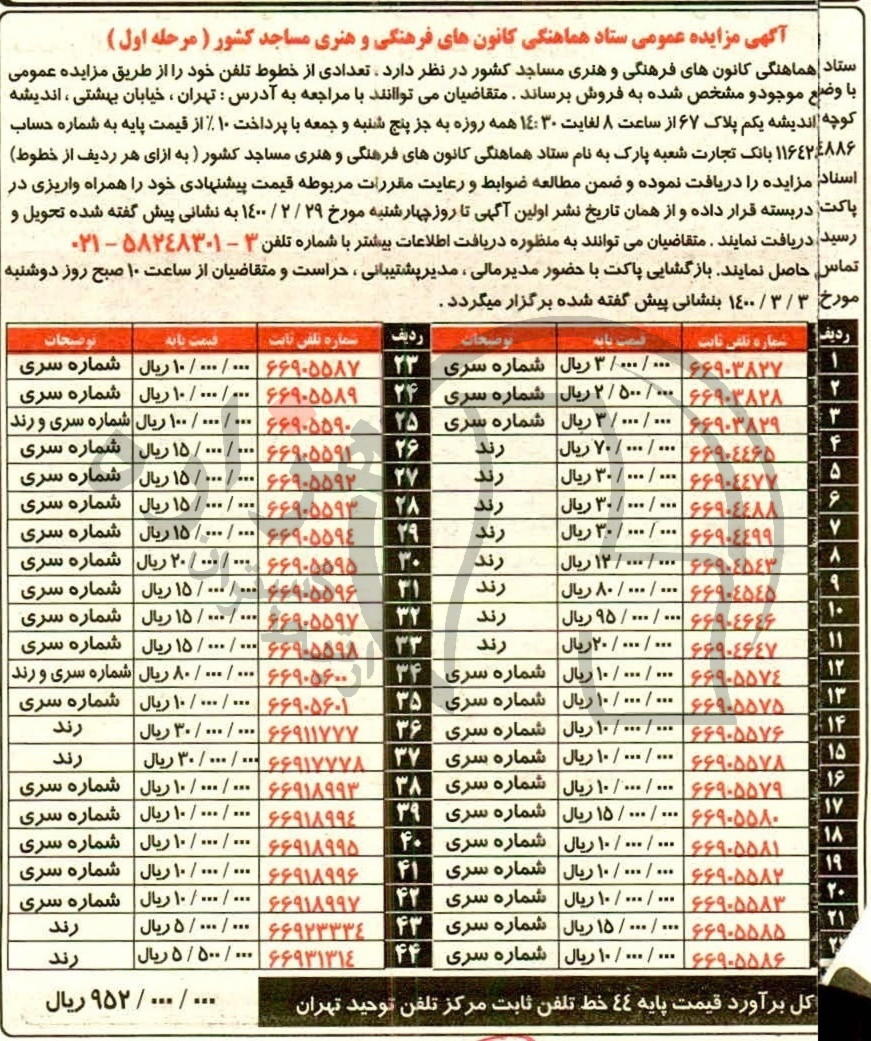 آگهی مزایده عمومی ستاد هماهنگی کانون های فرهنگی و هنری مساجد کشور ( مرحله اول )
ستاد هماهنگی کانون های فرهنگی و هنری مساجد کشور در نظر دارد . تعدادی از خطوط تلفن خود را از طریق مزایده عمومی
با وضع موجودو مشخص شده به فروش برساند . متقاضیان می تواانند با مراجعه به آدرس : تهران ، خیابان بهشتی ، اندیشه
کوچه اندیشه یکم پلاک ۶۷ از ساعت ۸ لغایت ۱٤:۳۰ همه روزه به جز پنج شنبه و جمعه با پرداخت ۱۰ ٪ از قیمت پایه به شماره حساب
۱۱۶٤۲٤۸۸۶ بانک تجارت شعبه پارک به نام ستاد هماهنگی کانون های فرهنگی و هنری مساجد کشور ( به ازای هر ردیف از خطوط)
اسناد مزایده را دریافت نموده و ضمن مطالعه ضوابط و رعایت مقررات مربوطه قیمت پیشنهادی خود را همراه واریزی در
پاکت دربسته قرار داده و از همان تاریخ نشر اولین آگهی تا روزچهارشنبه مورخ ۲۹ / ۲ / ۱٤۰۰ به نشانی پیش گفته شده تحویل و
رسید دریافت نمایند . متقاضیان می توانند به منظوره دریافت اطلاعات بیشتر با شماره تلفن ۳ – ۵۸۲٤۸۳۰۱ – ۰۲۱
تماس حاصل نمایند. بازگشایی پاکت با حضور مدیرمالی ، مدیرپشتیبانی ، حراست و متقاضیان از ساعت ۱۰ صبح روز دوشنبه
مورخ ۳ / ۳ / ۱٤۰۰ بنشانی پیش گفته شده برگزار میگردد .
ردیف شماره تلفن ثابت قیمت پایه توضیحات ردیف شماره تلفن ثابت قیمت پایه توضیحات
۱ ۶۶۹۰۳۸۲۷ ۳/۰۰۰/۰۰۰ ریال شماره سری ۲۳ ۶۶۹۰۵۵۸۷ ۱۰/۰۰۰/۰۰۰ ریال شماره سری
۲ ۶۶۹۰۳۸۲۸ ۲/۵۰۰/۰۰۰ ریال شماره سری ۲۴ ۶۶۹۰۵۵۸۹ ۱۰/۰۰۰/۰۰۰ ریال شماره سری
۳ ۶۶۹۰۳۸۲۹ ۳/۰۰۰/۰۰۰ ریال شماره سری ۲۵ ۶۶۹۰۵۵۹۰ ۱۰۰/۰۰۰/۰۰۰ ریال شماره سری و رند
۴ ۶۶۹۰٤٤۶۵ ۷۰/۰۰۰/۰۰۰ ریال رند ۲۶ ۶۶۹۰۵۵۹۱ ۱۵/۰۰۰/۰۰۰ ریال شماره سری
۵ ۶۶۹۰٤٤۷۷ ۳۰/۰۰۰/۰۰۰ ریال رند ۲۷ ۶۶۹۰۵۵۹۲ ۱۵/۰۰۰/۰۰۰ ریال شماره سری
۶ ۶۶۹۰٤٤۸۸ ۳۰/۰۰۰/۰۰۰ ریال رند ۲۸ ۶۶۹۰۵۵۹۳ ۱۵/۰۰۰/۰۰۰ ریال شماره سری
۷ ۶۶۹۰٤٤۹۹ ۳۰/۰۰۰/۰۰۰ ریال رند ۲۹ ۶۶۹۰۵۵۹٤ ۱۵/۰۰۰/۰۰۰ ریال شماره سری
۸ ۶۶۹۰٤۵٤۳ ۱۲/۰۰۰/۰۰۰ ریال رند ۳۰ ۶۶۹۰۵۵۹۵ ۲۰/۰۰۰/۰۰۰ ریال شماره سری
۹ ۶۶۹۰٤۵٤۵ ۸۰/۰۰۰/۰۰۰ ریال رند ۳۱ ۶۶۹۰۵۵۹۶ ۱۵/۰۰۰/۰۰۰ ریال شماره سری
۱۰ ۶۶۹۰٤۶٤۶ ۹۵/۰۰۰/۰۰۰ ریال رند ۳۲ ۶۶۹۰۵۵۹۷ ۱۵/۰۰۰/۰۰۰ ریال شماره سری
۱۱ ۶۶۹۰٤۶٤۷ ۲۰/۰۰۰/۰۰۰ ریال رند ۳۳ ۶۶۹۰۵۵۹۸ ۱۵/۰۰۰/۰۰۰ ریال شماره سری
۱۲ ۶۶۹۰۵۵۷٤ ۱۰/۰۰۰/۰۰۰ ریال شماره سری ۳۴ ۶۶۹۰۵۶۰۰ ۸۰/۰۰۰/۰۰۰ ریال شماره سری و رند
۱۳ ۶۶۹۰۵۵۷۵ ۱۰/۰۰۰/۰۰۰ ریال شماره سری ۳۵ ۶۶۹۰۵۶۰۱ ۱۰/۰۰۰/۰۰۰ ریال شماره سری
۱۴ ۶۶۹۰۵۵۷۶ ۱۰/۰۰۰/۰۰۰ ریال شماره سری ۳۶ ۶۶۹۱۱۷۷۷ ۳۰/۰۰۰/۰۰۰ ریال رند
۱۵ ۶۶۹۰۵۵۷۸ ۱۰/۰۰۰/۰۰۰ ریال شماره سری ۳۷ ۶۶۹۱۷۷۷۸ ۳۰/۰۰۰/۰۰۰ ریال رند
۱۶ ۶۶۹۰۵۵۷۹ ۱۰/۰۰۰/۰۰۰ ریال شماره سری ۳۸ ۶۶۹۱۸۹۹۳ ۱۰/۰۰۰/۰۰۰ ریال شماره سری
۱۷ ۶۶۹۰۵۵۸۰ ۱۵/۰۰۰/۰۰۰ ریال شماره سری ۳۹ ۶۶۹۱۸۹۹٤ ۱۰/۰۰۰/۰۰۰ ریال شماره سری
۱۸ ۶۶۹۰۵۵۸۱ ۱۰/۰۰۰/۰۰۰ ریال شماره سری ۴۰ ۶۶۹۱۸۹۹۵ ۱۰/۰۰۰/۰۰۰ ریال شماره سری
۱۹ ۶۶۹۰۵۵۸۲ ۱۰/۰۰۰/۰۰۰ ریال شماره سری ۴۱ ۶۶۹۱۸۹۹۶ ۱۰/۰۰۰/۰۰۰ ریال شماره سری
۲۰ ۶۶۹۰۵۵۸۳ ۱۰/۰۰۰/۰۰۰ ریال شماره سری ۴۲ ۶۶۹۱۸۹۹۷ ۱۰/۰۰۰/۰۰۰ ریال شماره سری
۲۱ ۶۶۹۰۵۵۸۵ ۱۵/۰۰۰/۰۰۰ ریال شماره سری ۴۳ ۶۶۹۲۳۳۳٤ ۵/۰۰۰/۰۰۰ ریال رند
۶۶۹۰۵۵۸۶ ۱۰/۰۰۰/۰۰۰ ریال شماره سری ۴۴ ۶۶۹۳۱۳۱٤ ۵/۵۰۰/۰۰۰ ریال رند
کل برآورد قیمت پایه ٤٤ خط تلفن ثابت مرکز تلفن توحید تهران ۹۵۲/۰۰۰/۰۰۰ ریال